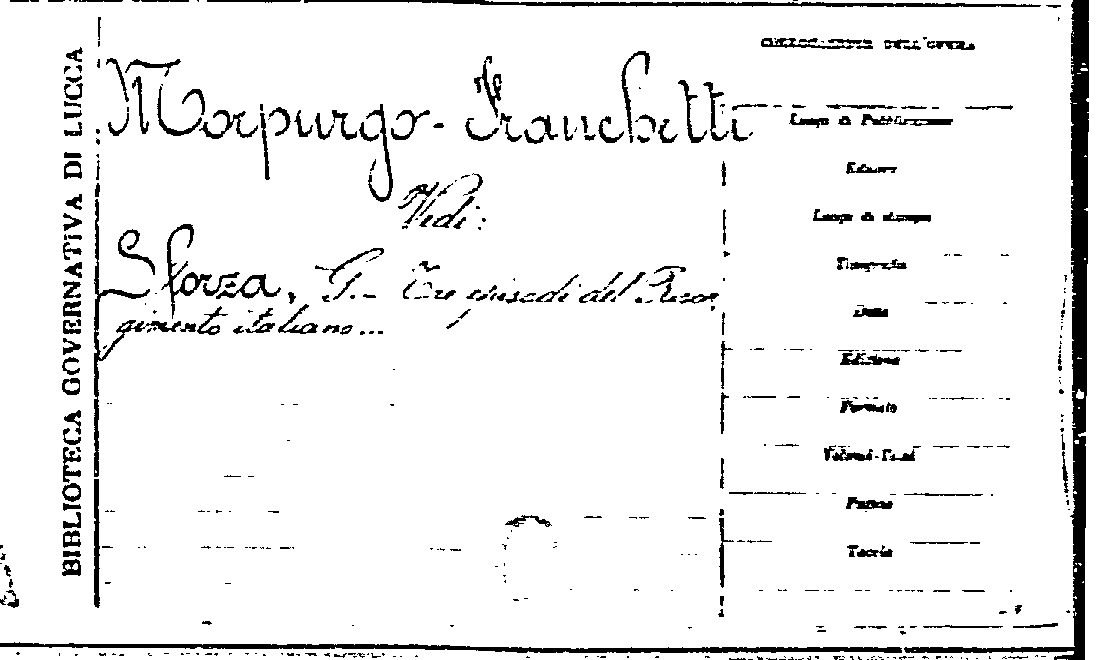 BIBLIOTECA GOVERNATIVA DI LUCCA
Morpurgo-Franchetti
Vedi:
Sforza, G.- Tre episodi del Risor
gimento italiano...
COLLOCAZIONE DELL'OPERA
Luogo di Pubblicazione
Editore
Luogo di stampa
Tipografia
Data
Edizione
Formato
Volumi-Tomi
Pagine
Tavole